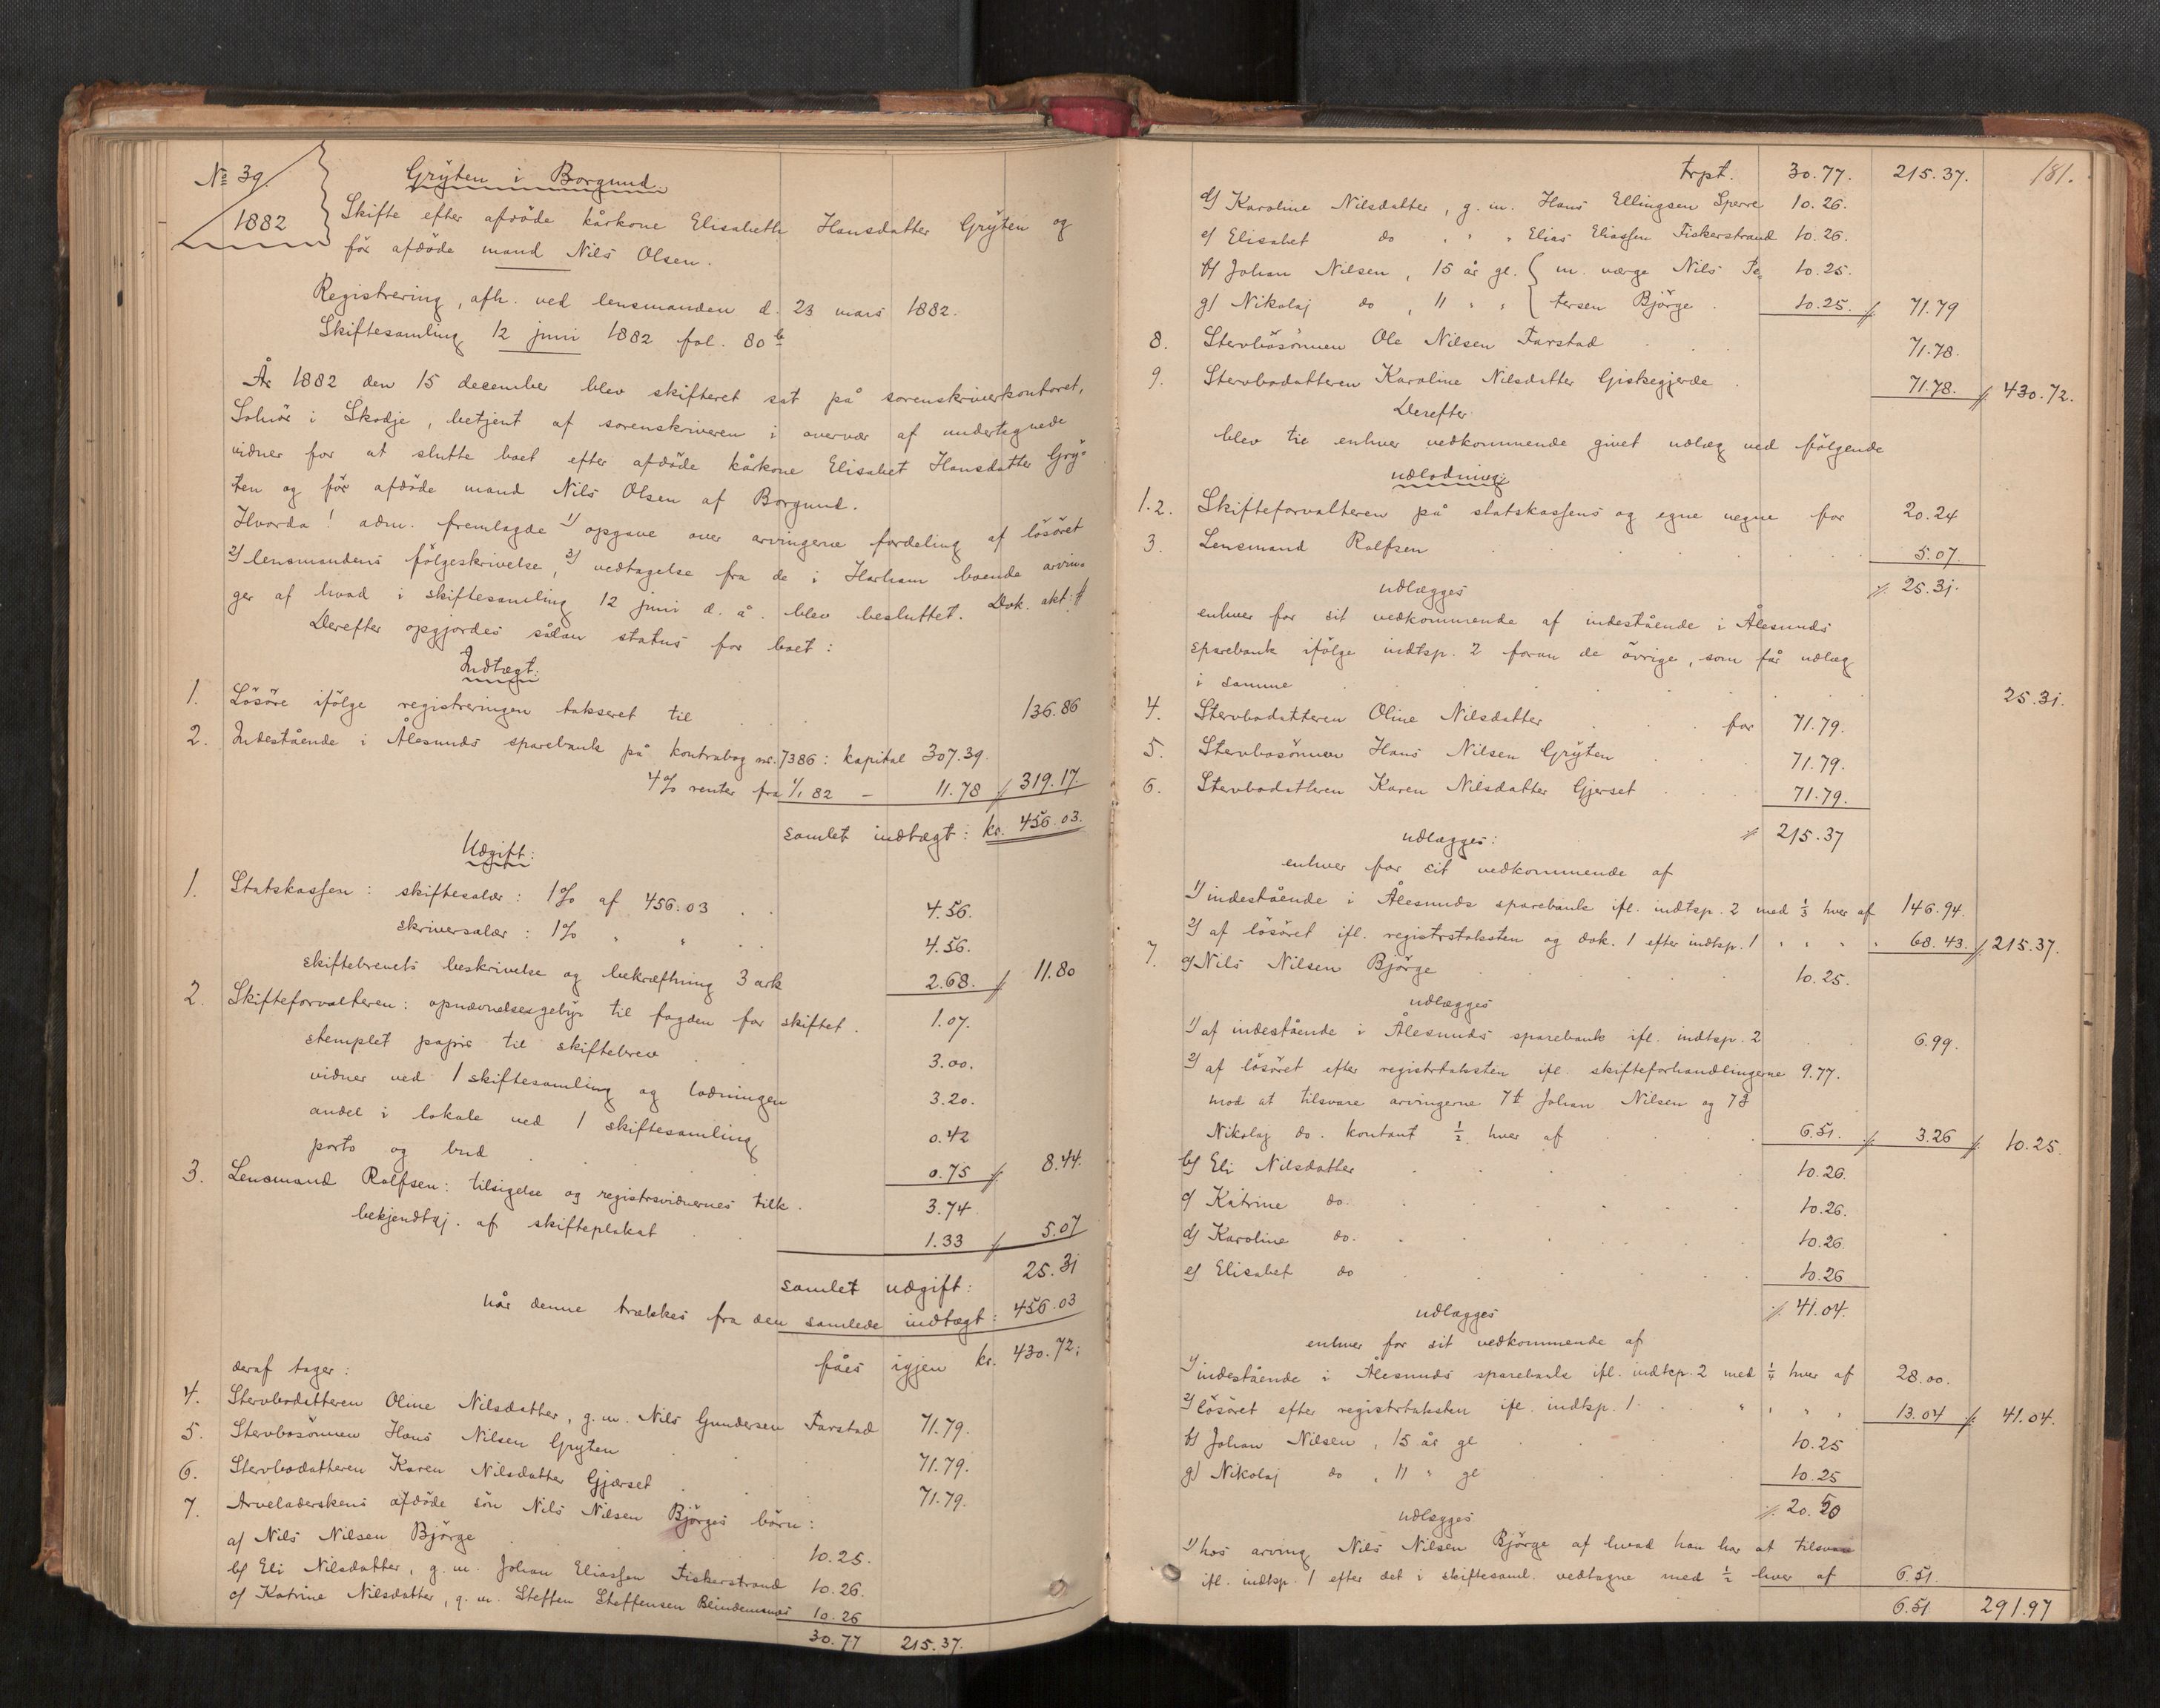 No 39.
1882
Gryten i Borgund.
Skifte efter afdöde kårkone Elisabeth Hansdatter Gryten og
för afdöde mand Nils Olsen.
Registrering, afh. ved lensmanden d. 23 mars 1882.
Skiftesamling 12 juni 1882 fol. 80 b
År 1882 den 15 december blev skifteret sat på sorenskriverkontoret,
Solnör i Skodje, betjent af sorenskriveren i overvær af undertegnede
vidner for at slutte boet efter afdöde kårkone Elisabet Hansdatter Gry-
ten og för afdöde mand Nils Olsen af Borgund.
Hvorda! adm. fremlagde 1) opgave over arvingerne fordeling af lösöret
2) lensmandens fölgeskrivelse, 3) vedtagelse fra de i Harham boende arvin-
ger af hvad i skiftesamling 12 juni d. å. blev besluttet. Dok. akt:#
Derefter opgjordes sådan status for boet:
Indtægt:
1. Lösöre ifölge registreringen takseret til . . . 136.86
2. Indestående i Ålesunds sparebank på kontrabog nr. 7386: kapital 307.39.
4% renter fra 1/1 82 — 11.78 // 319.17.
samlet indtægt: kr. 456.03.
Udgift:
1. Statskassen: skiftesalær: 1% af 456.03 . . 4.56.
skriversalær: 1% " " . . 4.56.
skiftebrevets beskrivelse og bekræftning 3 ark 2.68. // 11.80
2. Skifteforvalteren: opnævnelsesgebyr til fogden for skiftet. 1.07.
stemplet papir til skiftebrev . . 3.00.
vidner ved 1 skiftesamling og lodningen 3.20.
andel i lokale ved 1 skiftesamling 0.42
porto og bud . . . 0.75 // 8.44.
3. Lensmand Rolfsen: tilsigelse og registrsvidnernes tilk. 3.74
bekjendtgj. af skifteplakat . . 1.33 // 5.07
samlet udgift: 25.31
når denne trækkes fra den samlede indtægt: 456.03
fåes igjen kr. 430.72;
deraf tager:
4. Stervbodatteren Oline Nilsdatter, g. m. Nils Gundersen Farstad 71.79.
5. Stervbosönnen Hans Nilsen Gryten . . 71.79.
6. Stervbodatteren Karen Nilsdatter Gjærset . . 71.79.
7. Arveladerskens afdöde sön Nils Nilsen Björges börn:
a) Nils Nilsen Björge 10.25.
b) Eli Nilsdatter, g. m. Johan Eliassen Fiskerstrand 10.26.
c) Katrine Nilsdatter, g. m. Steffen Steffensen Blindemsnes 10.26
30.77 215.37.
181.
trpt. 30.77. 215.37.
d) Karoline Nilsdatter, g. m. Hans Ellingsen Sperre 10.26.
e) Elisabet do , " " Elias Eliassen Fiskerstrand 10.26.
f) Johan Nilsen, 15 år gl. { m. værge Nils Pe- 10.25.
g) Nikolaj do , 11 " " { tersen Björge . 10.25. // 71.79
8. Stervbosönnen Ole Nilsen Farstad . . . 71.78.
9. Stervbodatteren Karoline Nilsdatter Giskegjerde . 71.78. // 430.72.
Derefter
blev til enhver vedkommende givet udlæg ved fölgende
udlodning:
1.2. Skifteforvalteren på statskassens og egne vegne for 20.24
3. Lensmand Rolfsen . . . 5.07.
udlægges // 25.31.
enhver for sit vedkommende af indestående i Ålesunds
sparebank ifölge indtsp. 2 foran de övrige, som får udlæg
i samme . . . 25.31.
4. Stervbodatteren Oline Nilsdatter . . for 71.79.
5. Stervbosönnen Hans Nilsen Gryten . . . 71.79.
6. Stervbodatteren Karen Nilsdatter Gjerset . . . 71.79.
udlægges: // 215.37
enhver for sit vedkommende af
1) indestående i Ålesunds sparebank ifl. indtsp. 2 med 1/3 hver af 146.94.
2) af lösöret ifl. registrstaksten og dok. 1 efter indtsp. 1 " " " " 68.43. // 215.37.
7. a) Nils Nilsen Björge . . . 10.25.
udlægges
1) af indestående i Ålesunds sparebank ifl. indtsp. 2 . . 6.99.
2) af lösöret efter registrtaksten ifl. skifteforhandlingerne 9.77.
mod at tilsvare arvingerne 7 f Johan Nilsen og 7 g
Nikolaj do. kontant 1/2 hver af . . . 6.51. // 3.26 // 10.25.
b) Eli Nilsdatter . . . 10.26.
c) Katrine do. . . . 10.26.
d) Karoline do. . . . 10.26.
e) Elisabet do . . . 10.26
udlægges // 41.04.
enhver for sit vedkommende af
1) indestående i Ålesunds sparebank ifl. indtsp. 2 med 1/4 hver af 28.00.
2) lösöret efter registrtaksten ifl. indtsp. 1 . . " " " " 13.04 // 41.04.
f) Johan Nilsen, 15 år gl . . . 10.25
g) Nikolaj do , 11 " gl . . . 10.25
udlægges // 20.50
1) hos arving Nils Nilsen Björge af hvad han har at tilsvare
ifl. indtsp. 1 efter det i skiftesaml. vedtagne med 1/2 hver af 6.51.
6.51 291.97